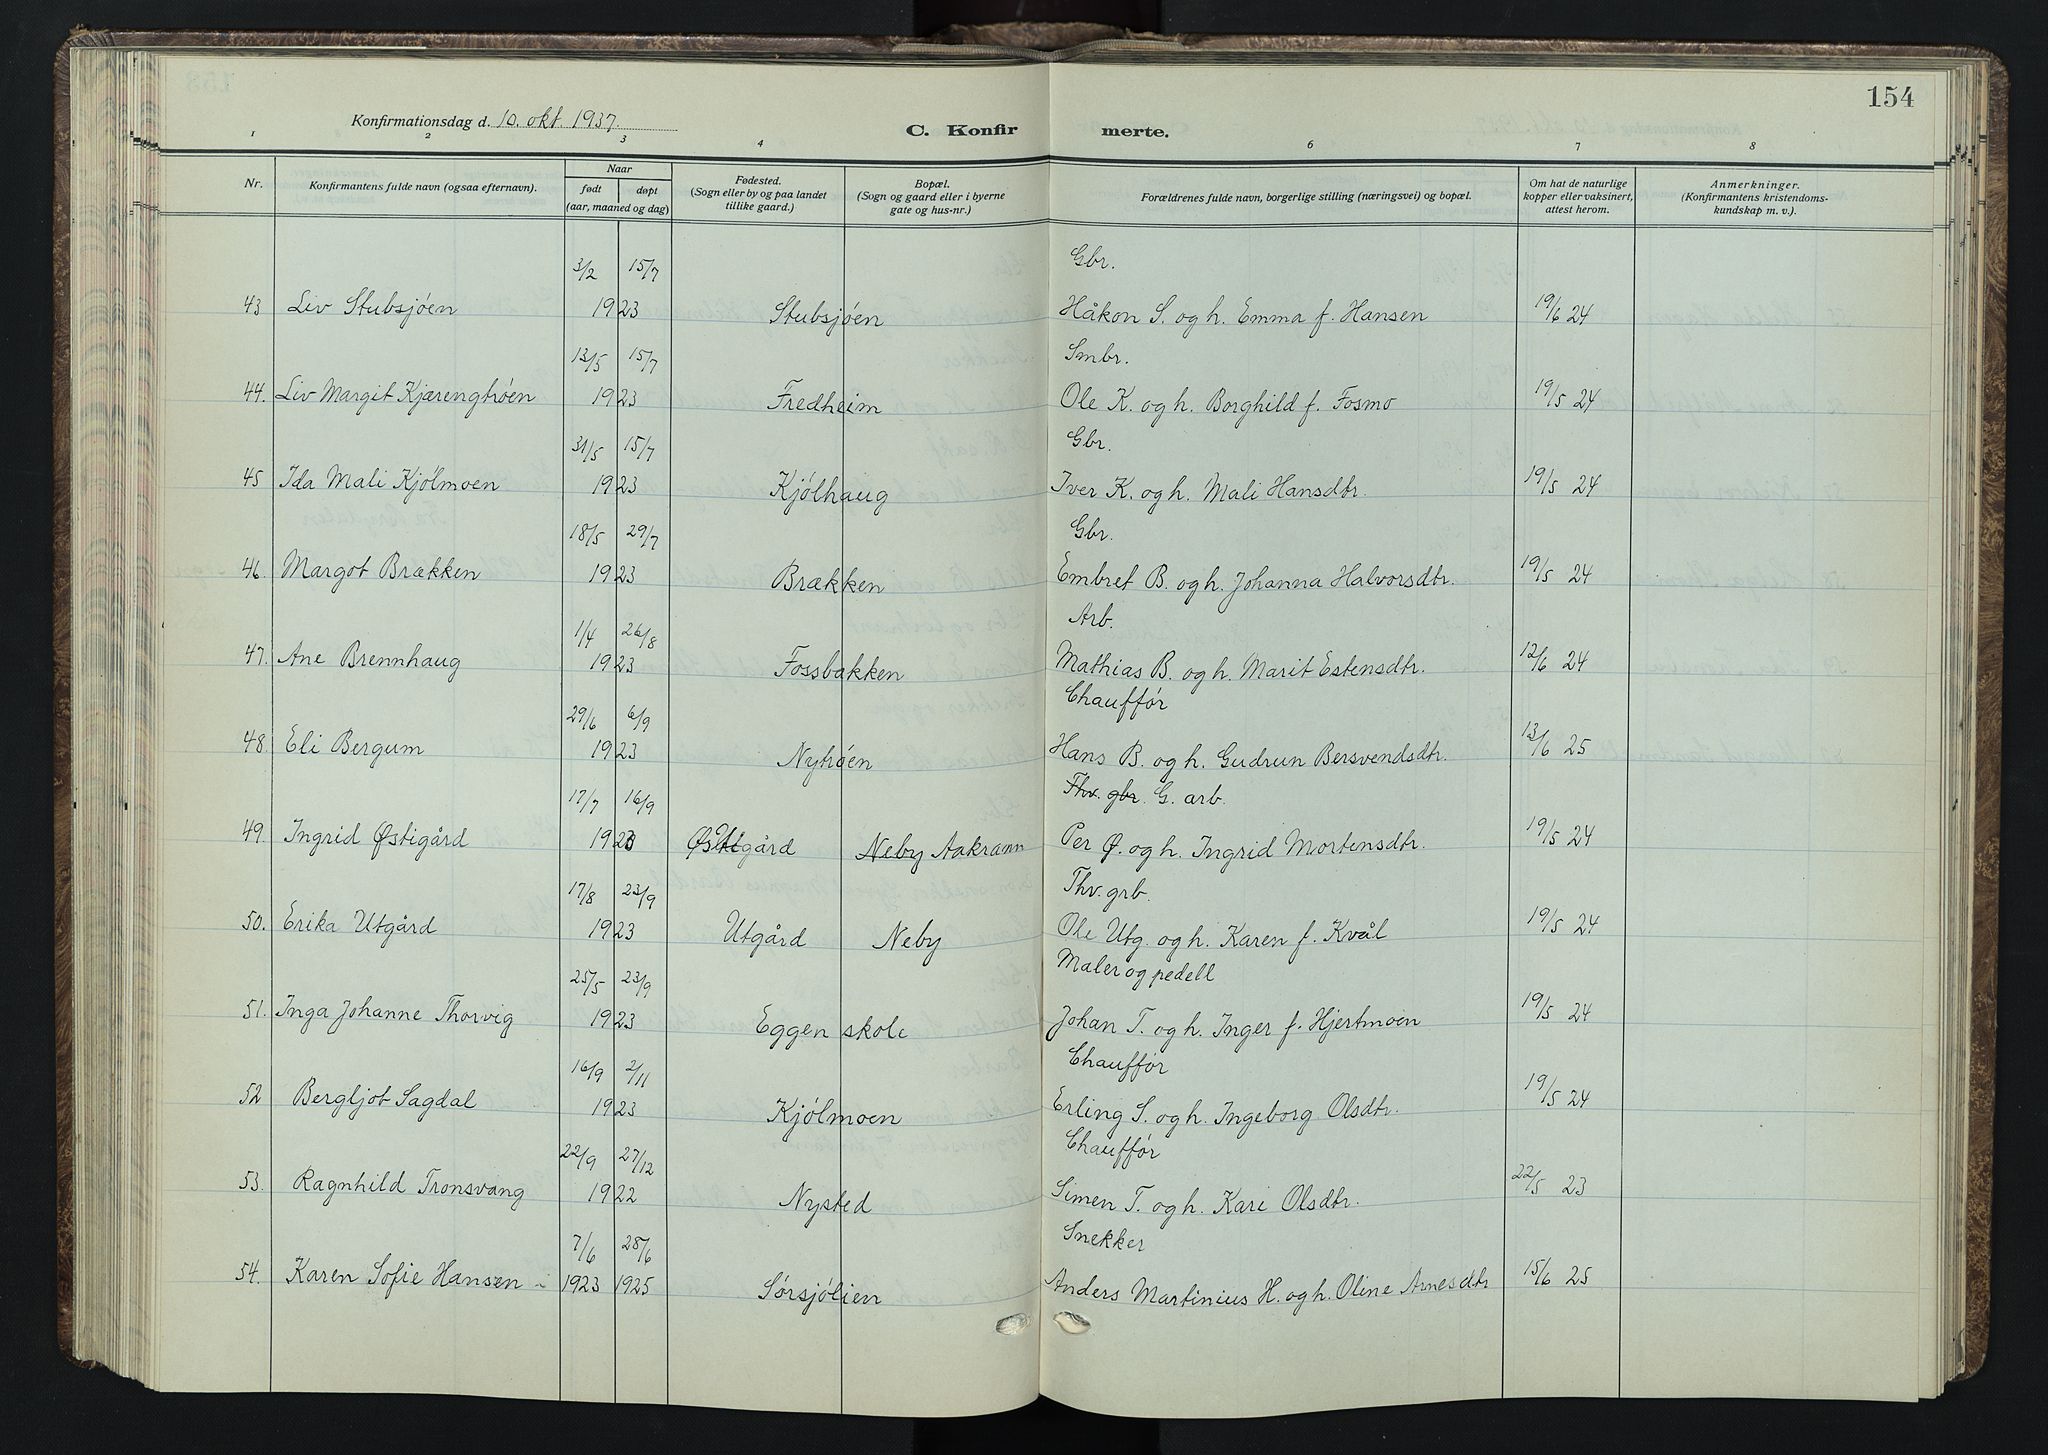 154
Konfirmationsdag d. 10. okt. 1937.
C. Konfir merte.
1 2 3 4 6 7 8
Nr. Konfirmantens fulde navn (ogsaa efternavn). Naar født døpt (aar, maaned og dag) Fødested. (Sogn eller by og paa landet tillike gaard.) Bopæl. (Sogn og gaard eller i byerne gate og hus-nr.) Forældrenes fulde navn, borgerlige stilling (næringsvei) og bopæl. Om hat de naturlige kopper eller vaksinert, attest herom. Anmerkninger. (Konfirmantens kristendoms-kundskap m. v.).
3/2 15/7 Gbr.
43 Liv Stubsjøen 1923 Stubsjøen Håkon S. og h. Emma f. Hansen 19/6 24
13/5 15/7 Smbr.
44. Liv Margit Kjærengtrøen 1923 Fredheim Ole K. og h. Borghild f. Fosmo 19/5 24
31/5 15/7 Gbr.
45 Ida Mali Kjølmoen 1923 Kjølhaug Iver K. og h. Mali Hansdtr. 19/5 24
18/5 29/7 Gbr.
46. Margot Brækken 1923 Brækken Embret B. og h. Johanna Halvorsdtr. 19/5 24
1/4 26/8 Arb.
47. Ane Brennhaug 1923 Fossbakken Mathias B. og h. Marit Estensdtr. 12/6 24
29/6 6/9 Chauffør
48. Eli Bergum 1923 Nytrøen Hans B. og h. Gudrun Bersvendsdtr. 13/6 25
17/7 16/9 Thv. gbr. G. arb.
49 Ingrid Østigård 1923 Østigård Neby Aakrann Per Ø. og h. Ingrid Mortensdtr. 19/5 24
17/8 23/9 Thv. grb.
50. Erika Utgård 1923 Utgård Neby Ole Utg. og h. Karen f. Kvål 19/5 24
25/5 23/9 Maler og pedell
51. Inga Johanne Thorvig 1923 Eggen skole Johan T. og h. Inger f. Hjertmoen 19/5 24
16/9 2/11 Chauffør
52 Bergljot Sagdal 1923 Kjølmoen Erling S. og h. Ingeborg Olsdtr. 19/5 24
22/9 27/12 Chauffør
53. Ragnhild Tronsvang 1922 Nysted Simen T. og h. Kari Olsdtr. 22/5 23
7/6 28/6 Snekker
54. Karen Sofie Hansen 1923 1925 Sørsjølien Anders Martinius H. og h. Oline Arnesdtr 15/6 25